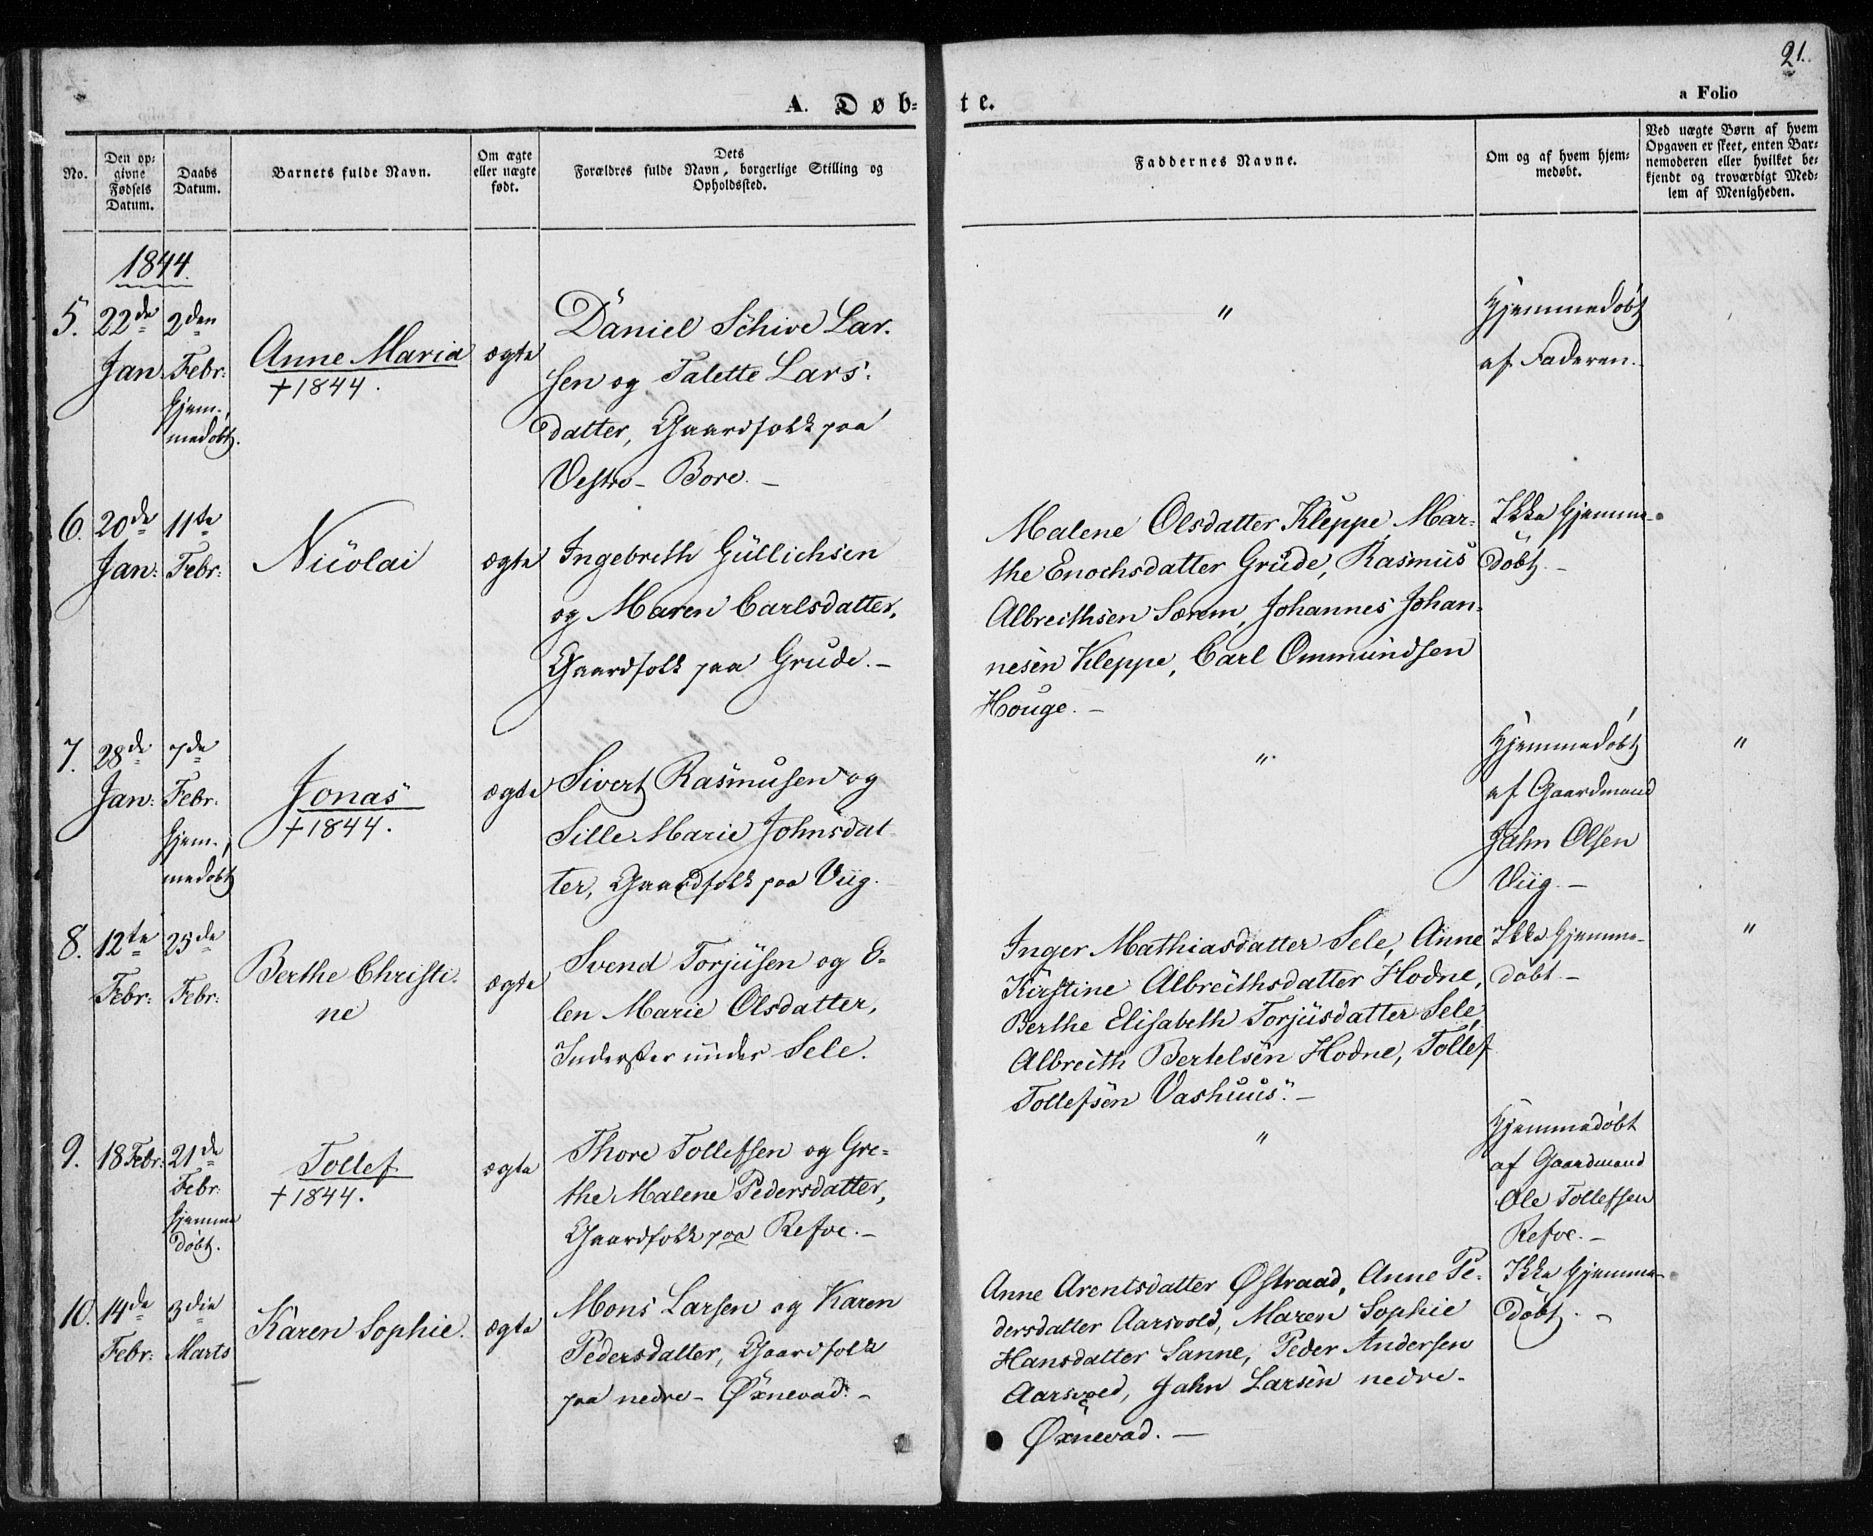 21.
A. Døb-
te.
a Folio
No.
Den op-
givne
Fødsels
Datum.
Daabs
Datum.
Barnets fulde Navn.
Om ægte
eller uægte
født.
Dets
Forældres fulde Navn, borgerlige Stilling og
Opholdssted.
Faddernes Navne.
Om og af hvem hjem-
medøbt.
Ved uægte Børn af hvem
Opgaven er skeet, enten Bar-
nemoderen eller hvilket be-
kjendt og troværdigt Med-
lem af Menigheden.
1844.
5.
22de
Jan
2den
Febr:
hjem-
medøbt.
Anne Maria
†1844.
ægte
Daniel Schive Lar-
sen og Talette Lars-
datter, Gaardfolk paa
Vestre-Bore.-
"
Hjemmedøbt
af Faderen.
6.
20de
Jan:
11te
Febr:
Nicolai
ægte
Ingebreth Gullichsen
og Maren Carlsdatter,
Gaardfolk paa Grude.-
Malene Olsdatter Kleppe, Mar-
the Enochsdatter Grude, Rasmus
Albreithsen Sørem, Johannes Johan-
nesen Kleppe, Carl Ommundsen
Houge.-
Ikke hjemme-
døbt.-
7.
28de
Jan:
7de
Febr.
hjem-
medøbt
Jonas
†1844.
ægte
Sivert Rasmusen og
Sille Marie Johnsdat
ter, Gaardfolk paa Viig.
"
Hjemmedøbt
af Gaardmand
Jahn Olsen
Viig.-
"
8.
12te
Febr:
25de
Febr:
Berthe Christi-
ne
ægte
Svend Torjusen og E-
len Marie Olsdatter,
Inderster under Sele.
Inger Mathiasdatter Sele, Anne
Kirstine Albreithsdatter Hodne,
Berthe Elisabeth Torjusdatter Sele,
Albreith Bertelsen Hodne, Tollef
Tollefsen Vashuus.-
Ikke hjemme-
døbt-
"
9.
18 Febr:
21de
Febr:
hjemme
døbt.
Tollef
†1844.
ægte
Thore Tollefsen og Gre-
the Malene Pedersdatter,
Gaardfolk paa Refve.-
"
Hjemmedøbt
af Gaardmand
Ole Tollefsen
Refve.-
10.
14de
Febr:
3die
Marts
Karen Sophie.
ægte
Mons Larsen og Karen
Pedersdatter, Gaardfolk
paa nedre-Øxnevad.-
Anne Arentsdatter Østraad, Anne Pe-
dersdatter Aarsvold, Maren Sophie
Hansdatter Sanne, Peder Andersen
Aarsvold, Jahn Larsen nedre-
Øxnevad.-
Ikke hjemme-
døbt.-